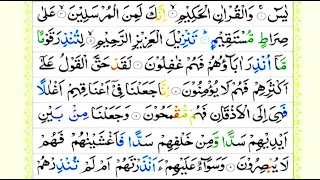 يٰسٓ ۚ وَالْقُرْاٰنِ الْحَكِيْمِ ۙ اِنَّكَ لَمِنَ الْمُرْسَلِيْنَ ۙ عَلٰى
صِرَاطٍ مُّسْتَقِيْمٍ ؕ تَنْزِيْلَ الْعَزِيْزِ الرَّحِيْمِ ۙ لِتُنْذِرَ قَوْمًا
مَّاۤ اُنْذِرَ اٰبَآؤُهُمْ فَهُمْ غٰفِلُوْنَ ۞ لَقَدْ حَقَّ الْقَوْلُ عَلٰٓى
اَكْثَرِهِمْ فَهُمْ لَا يُؤْمِنُوْنَ ۞ اِنَّا جَعَلْنَا فِيْۤ اَعْنَاقِهِمْ اَغْلٰلًا
فَهِيَ اِلَى الْاَذْقَانِ فَهُمْ مُّقْمَحُوْنَ ۞ وَجَعَلْنَا مِنْۢ بَيْنِ
اَيْدِيْهِمْ سَدًّا وَّمِنْ خَلْفِهِمْ سَدًّا فَاَغْشَيْنٰهُمْ فَهُمْ
لَا يُبْصِرُوْنَ ۞ وَسَوَآءٌ عَلَيْهِمْ ءَاَنْذَرْتَهُمْ اَمْ لَمْ تُنْذِرْهُمْ